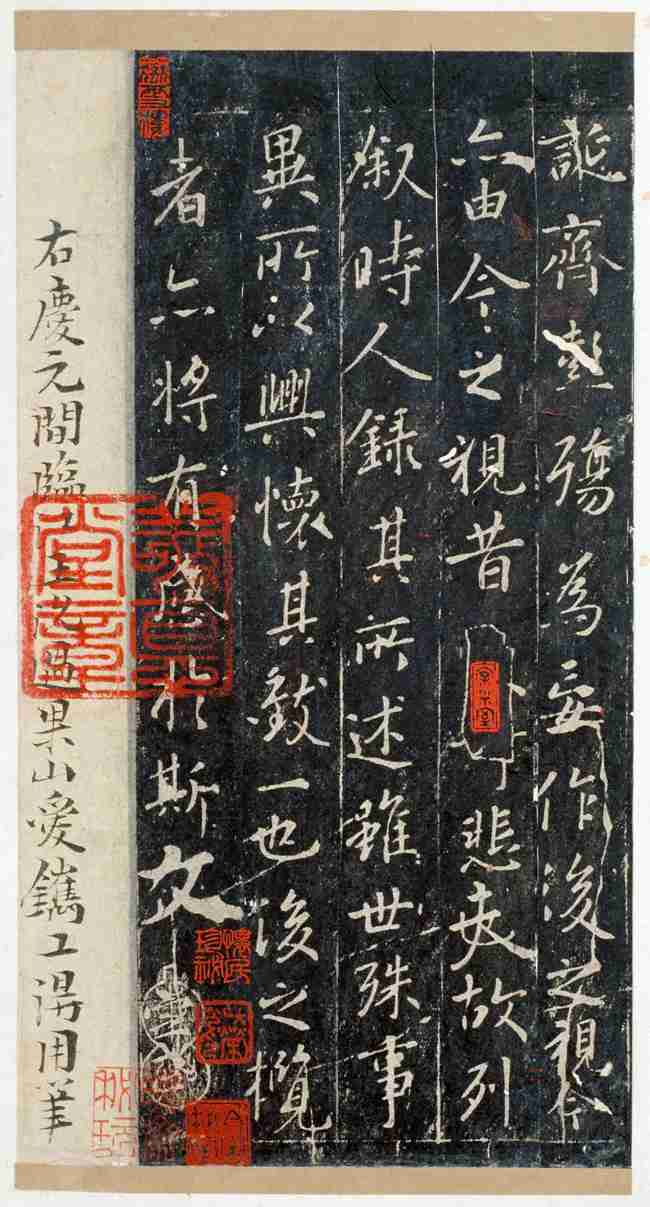 誕齊彭殤為妄作後之視今
亦由今之視昔悲夫故列
叙時人録其所述雖世殊事
異所以興懷其致一也後之攬
者亦將有感於斯文
右慶元間臨過果山愛鐫工得用筆